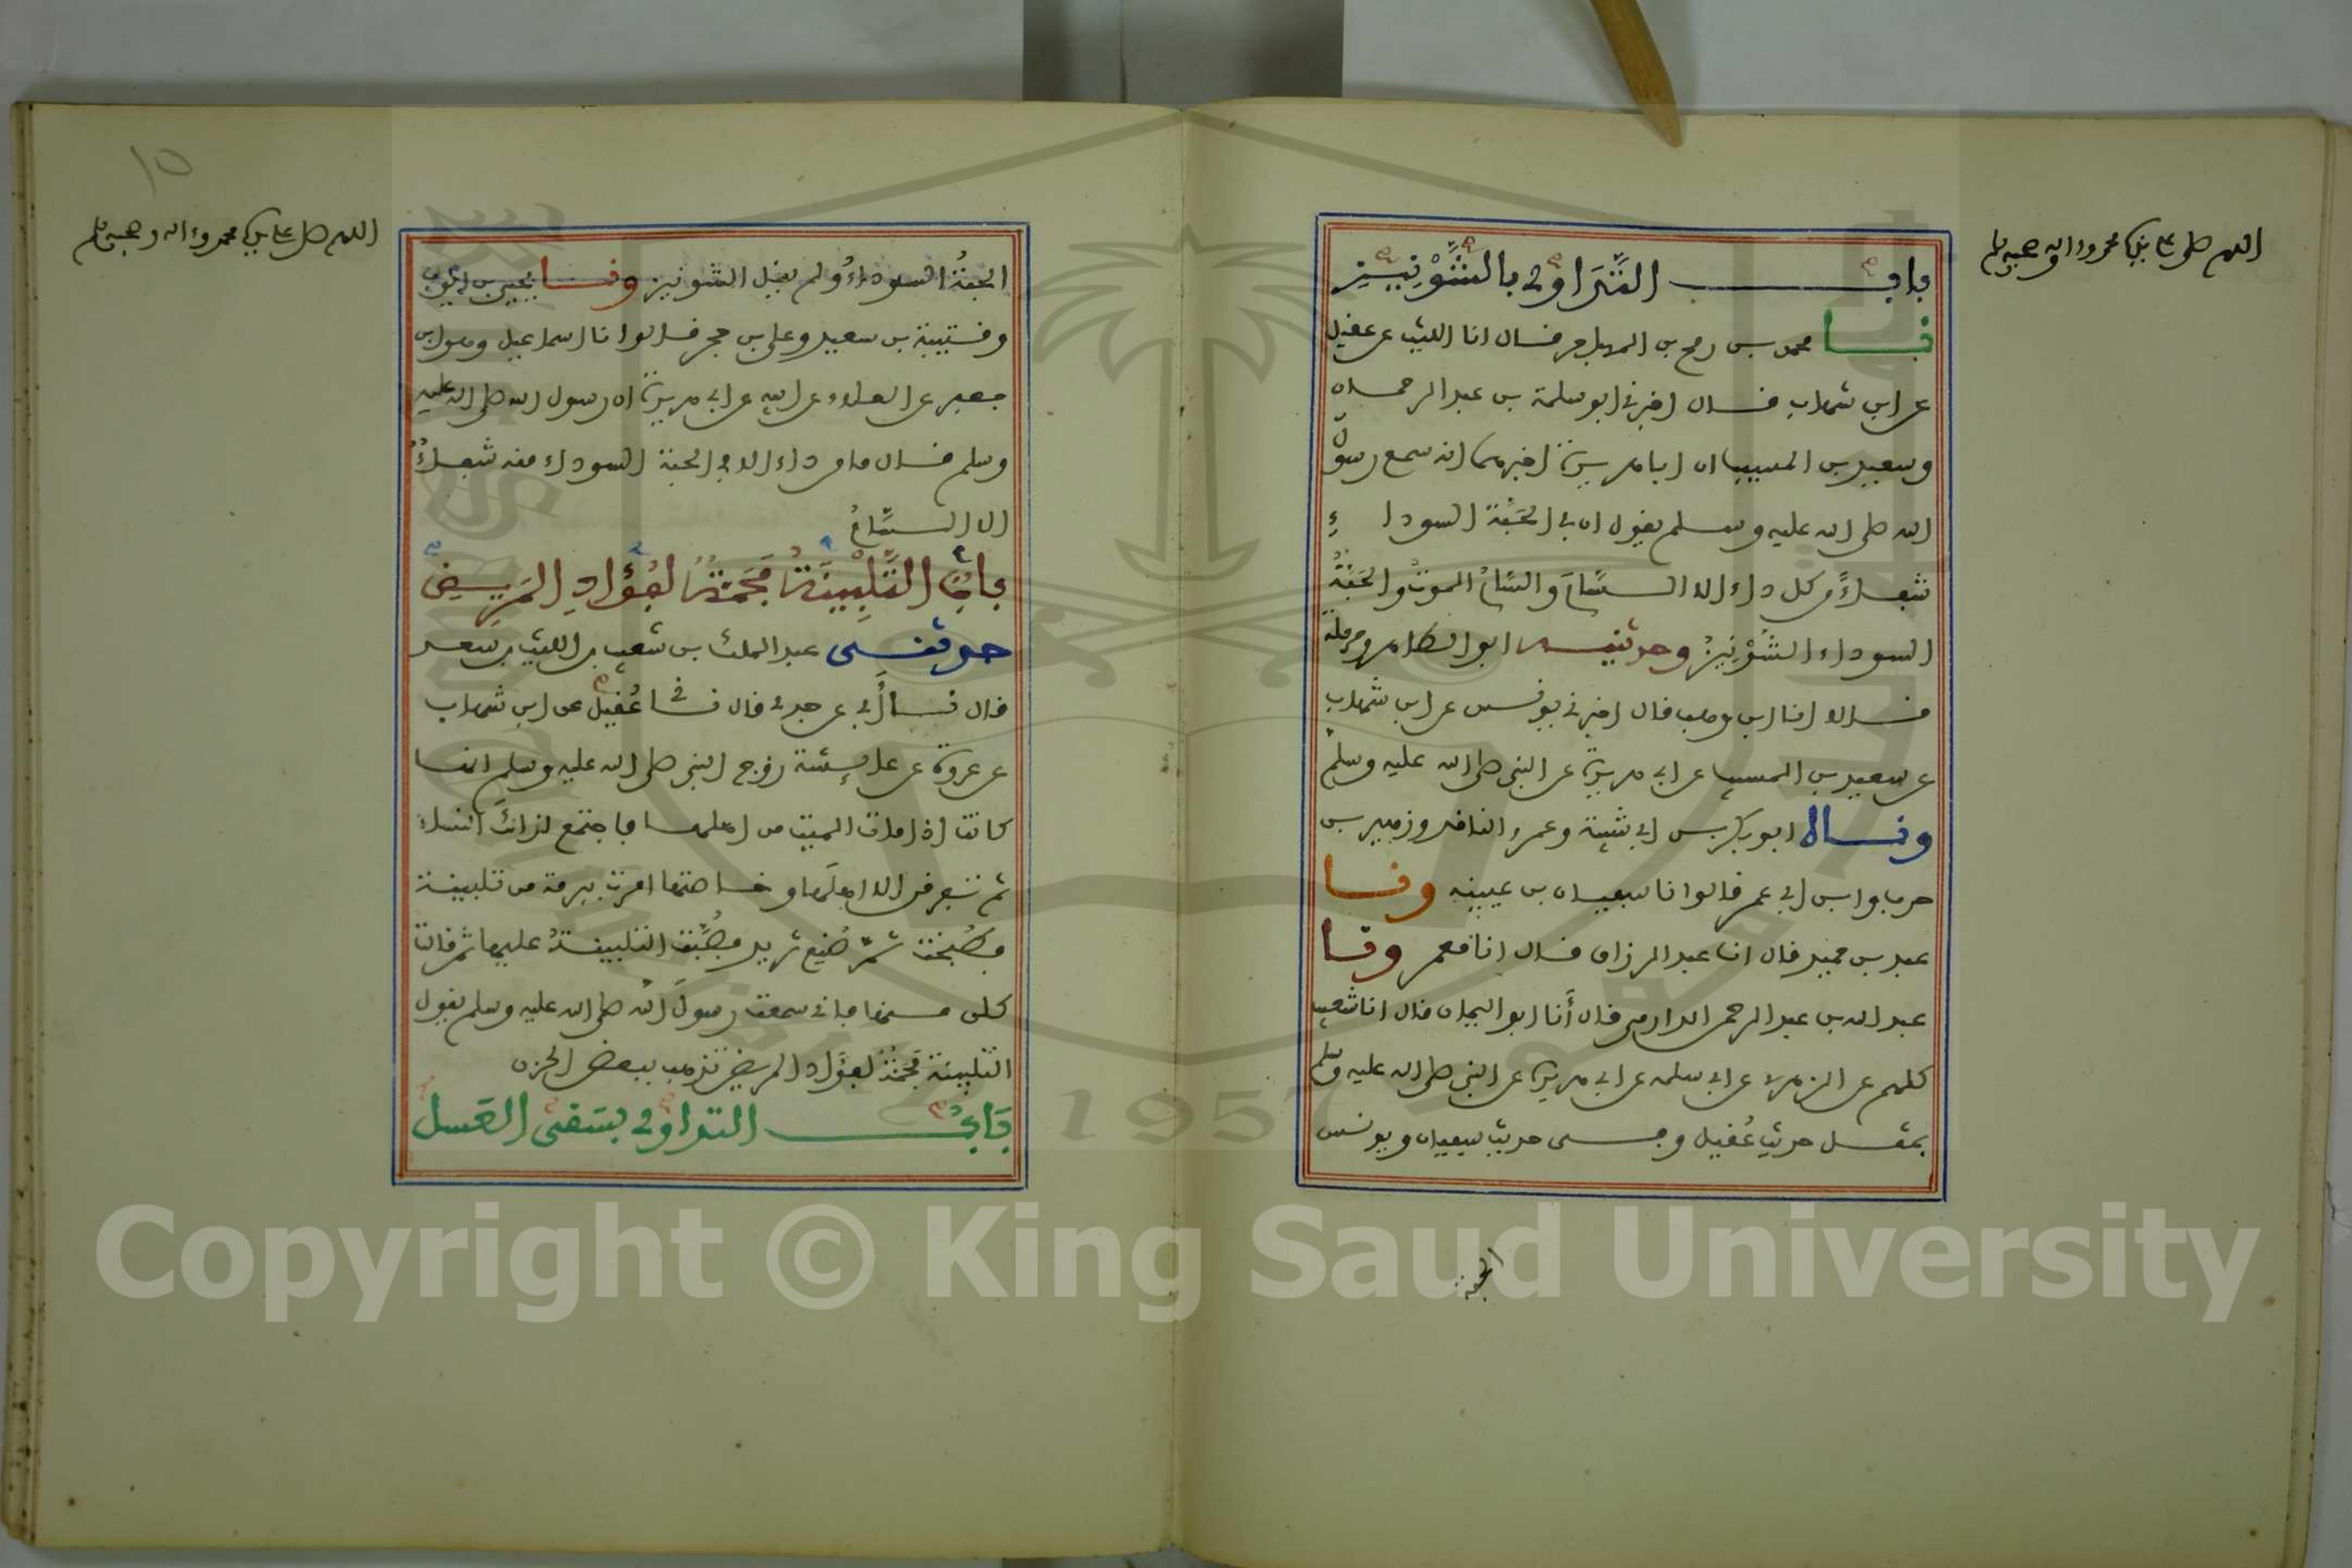 اللهم صل على نبيك محمد وءاله وصحبه وسلم
باب التداوي بالشُّوْنِيزِ
نا محمد بن رمح بن المهاجر قال انا الليث عن عقيل
عن ابن شهاب قال اخبرني ابو سلمة بن عبد الرحمان
وسعيد بن المسيب ان ابا هريرة اخبرهما انه سمع رسول
الله صلى الله عليه وسلم يقول ان في الحَبَّة السوداءِ
شفاءً من كل داء الا السَّامَ والسَّامُ الموتُ والحَبَّةُ
السوداء الشُّوْنِيزُ وحدثنيه ابو الطاهر وحرملة
قالا انا ابن وهب قال اخبرني يونس عن ابن شهاب
عن سعيد بن المسيب عن ابي هريرة عن النبي صلى الله عليه وسلم
وناه ابو بكر بن ابي شيبة وعمرو الناقد وزهير بن
حرب وابن ابي عمر قالوا نا سفيان بن عيينه ونا
عبد بن حميد قال انا عبد الرزاق قال انا معمر ونا
عبد الله بن عبد الرحمن الدارمي قال أَنا ابو اليمان قال انا شعيب
كلهم عن الزهري عن ابي سلمه عن ابي هريرة عن النبي صلى الله عليه وسلم
بمثل حديث عُقيل وفي حديث سفيان ويونس
الحبة
١٥
اللهم صل على نبيك محمد وءاله وصحبه وسلم
الحبةُ السوداءُ ولم يقل الشونيز ونا يحيى بن ايوب
وقتيبة بن سعيد وعلي بن حجر قالوا نا اسماعيل وهو ابن
جعفر عن العلاء عن ابيه عن ابي هريرة ان رسول الله صلى الله عليه
وسلم قال ما من داء الا في الحبة السوداء منه شفاءٌ
الا السَّامُ
بابُ التَّلْبِيْنَةُ مَجَمَّةٌ لفُؤَادِ المَرِيضِ
حدثني عبد الملك بن شعيب بن الليث بن سعد
قال نا أَبي عن جدي قال ني عُقيل عن ابن شهاب
عن عروة عن عايشة زوج النبي صلى الله عليه وسلم انها
كانت اذا مات الميت من اهلها فاجتمع لذلك النساء
ثم تفرقن الا اهلَها وخاصتها امرت ببرمة من تلبينة
فطُبخت ثمَّ صُنِع ثريد فصُبَّت التلبينةُ عليها ثم قالت
كلن منها فاني سمعت رسولَ الله صلى الله عليه وسلم يقول
التلبينة مَجَمَّةٌ لفؤَاد المريض تذهب ببعض الحزن
بَابُ التداوي بسَقْيِ العَسل
Copyright © King Saud University
1957